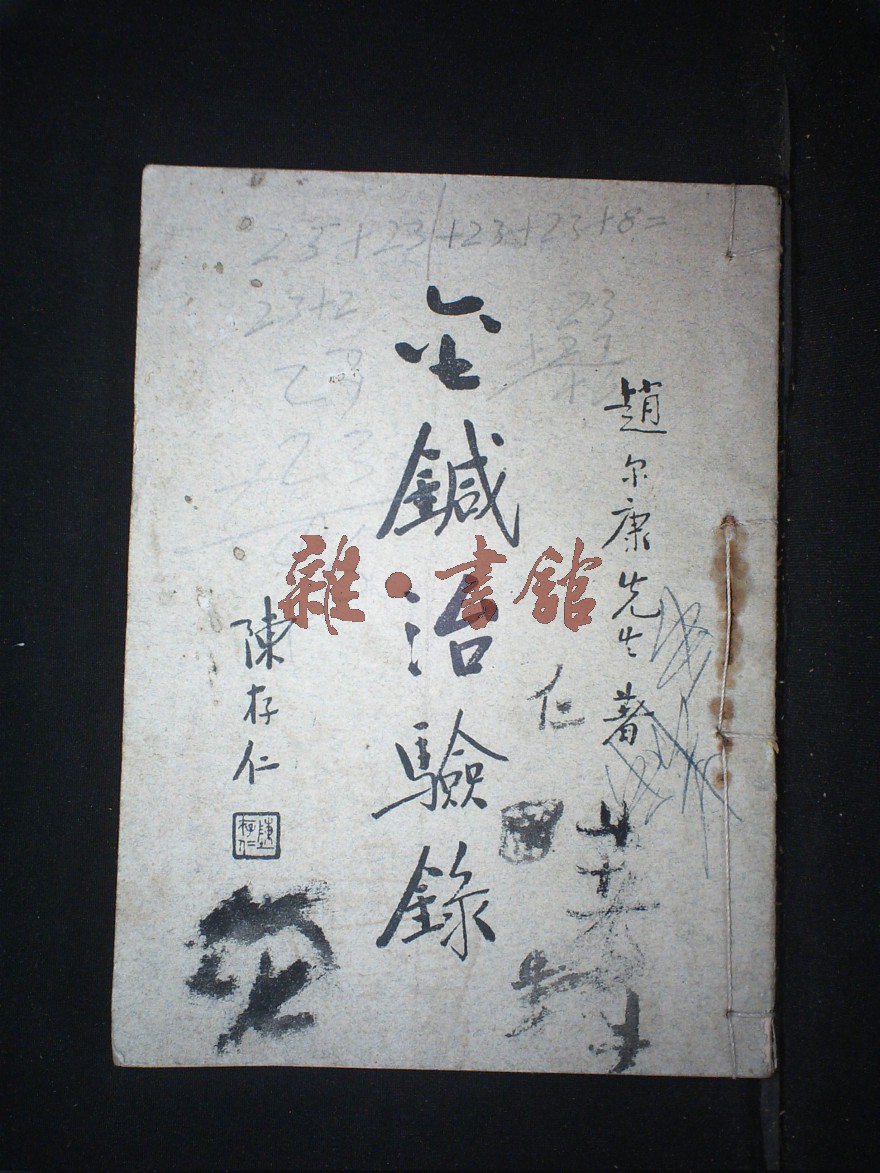 趙尔康先生著
金鍼治驗錄
陳存仁
陳存仁
仁
雜·書館
23+23+23+23+8=
23+2
23
23
23